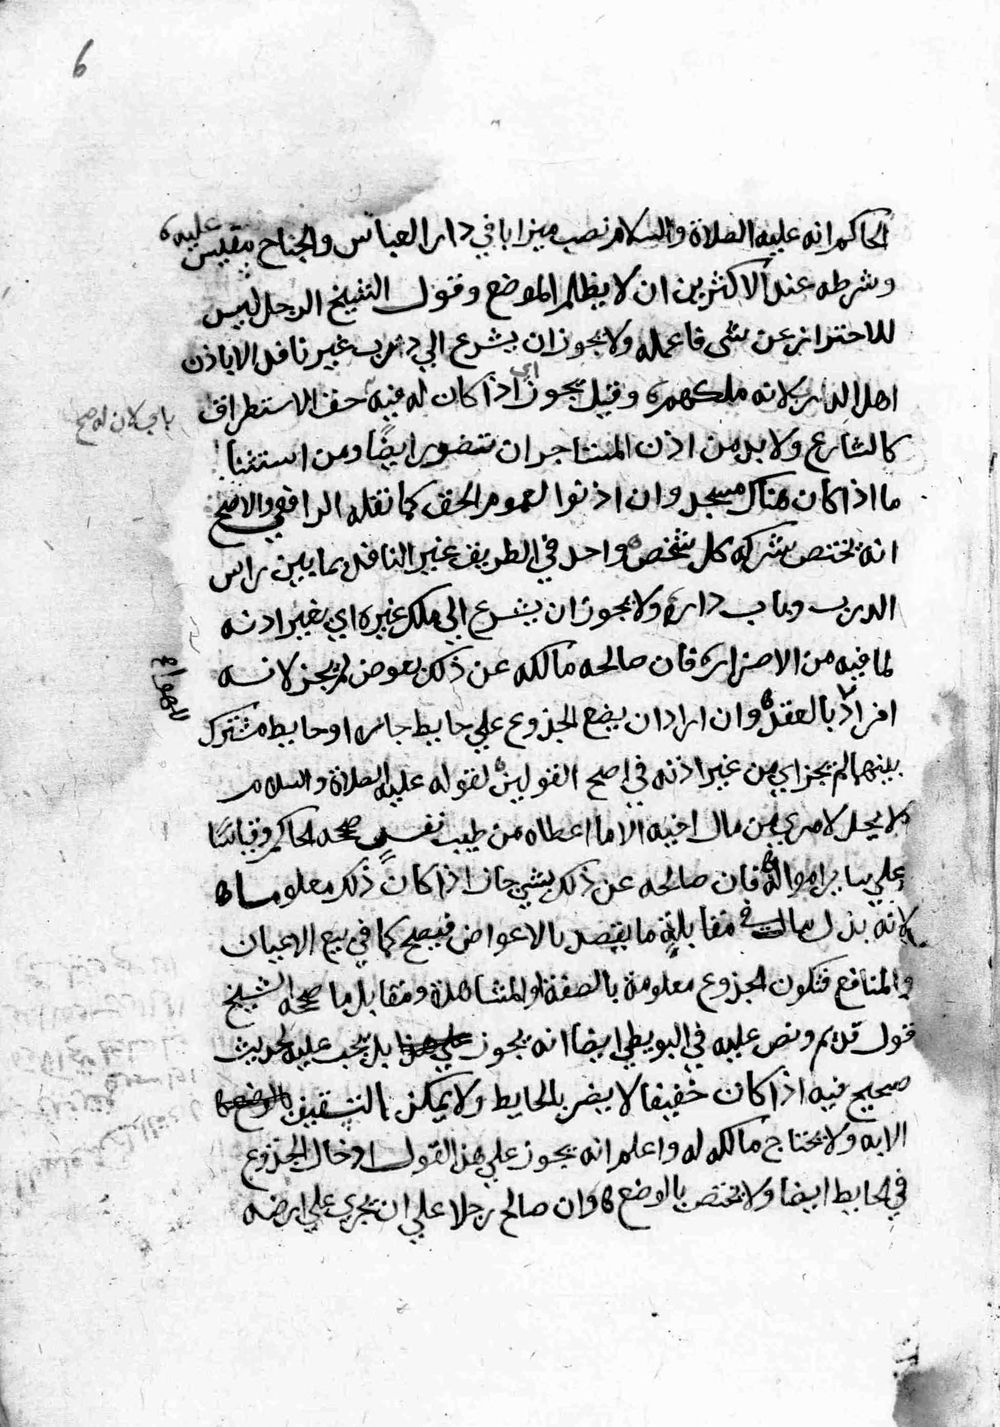 6
الحاكم انه عليه الصلاة والسلام نصب ميزابا في دار العباس والجناح مقيس عليه
وشرطه عند الاكثرين ان لا يظلم الموضع وقول الشيخ الرجل ليس
للاحتراز عن شي فاعمله ولا يجوز ان يشرع الي درب غير نافذ الا باذن
اهل الدرب لانه ملكهم وقيل يجوز اي اذا كان له فيه حق الاستطراق
كالشارع ولا بد من اذن المستاجر ان تضرر ايضا ومن استثنا
ما اذا كان هناك مسجد وان اذنوا لعموم الحق كما نقله الرافعي والاصح
انه تختص شركه كل شخص واحد في الطريق غير النافذ بما بين راس
الدرب وباب داره ولا يجوز ان يشرع الي ملك غيره اي بغير اذنه
لما فيه من الاضرار فان صالحه مالكه عن ذلك بعوض لم يجز لانه
للهواء
افراد بالعقد وان اراد ان يضع الجذوع علي حايط جاره او حايط مشترك
بينهما لم يجز اي من غير اذنه في اصح القولين لقوله عليه الصلاة والسلام
لا يحل لامري من مال اخيه الا ما اعطاه من طيب نفس صححه الحاكم وقياسا
علي ساير امواله فان صالحه عن ذلك بشي جاز اذا كان ذلك معلوما
لانه بذل مال في مقابلة ما يقصد بالاعواض فيصح كما في بيع الاعيان
والمنافع فتكون الجذوع معلومة بالصفة او المشاهدة ومقابل ما صححه الشيخ
قول قديم ونص عليه في البويطي ايضا انه يجوز بل يجب عليه لحديث
صحيح فيه اذا كان خفيفا لا يضر بالحايط ولا يمكن التسقيف
الا به ولا يحتاج مالكه له واعلم انه يجوز علي هذا القول ادخال الجذوع
في الحايط ايضا ولا تختص بالوضع وان صالح رجلا علي ان يجري علي ارضه